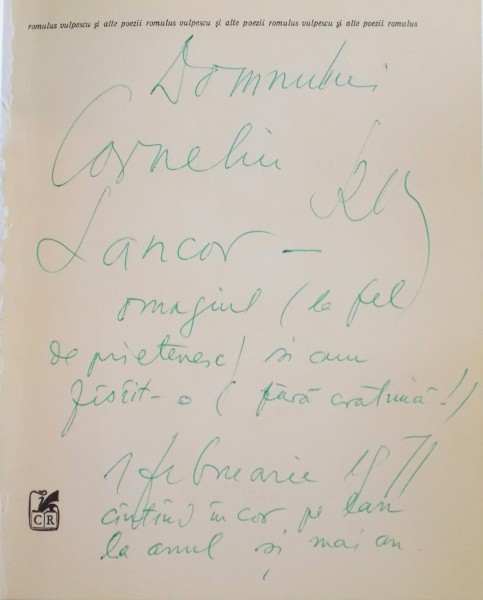 romulus vulpescu și alte poezii romulus vulpescu și alte poezii romulus vulpescu și alte poezii romulus
Domnului
Corneliu
Lancor —
omagiul (la fel
de prietenesc) și am
fîsîit-o (fără cratimă!)
1 februarie 1971
cîntînd în cor pe Lan
la anul și mai an
CR